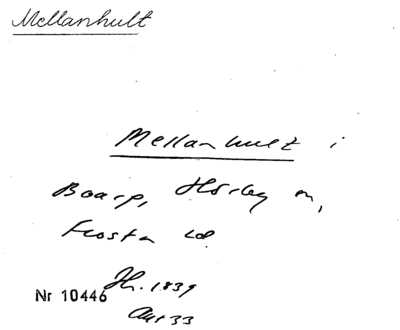 Mellanhult
Mellanhult i
Boarp, Hörby sn,
Frosta hd
Jh. 1839
Nr 10446
Akt 33